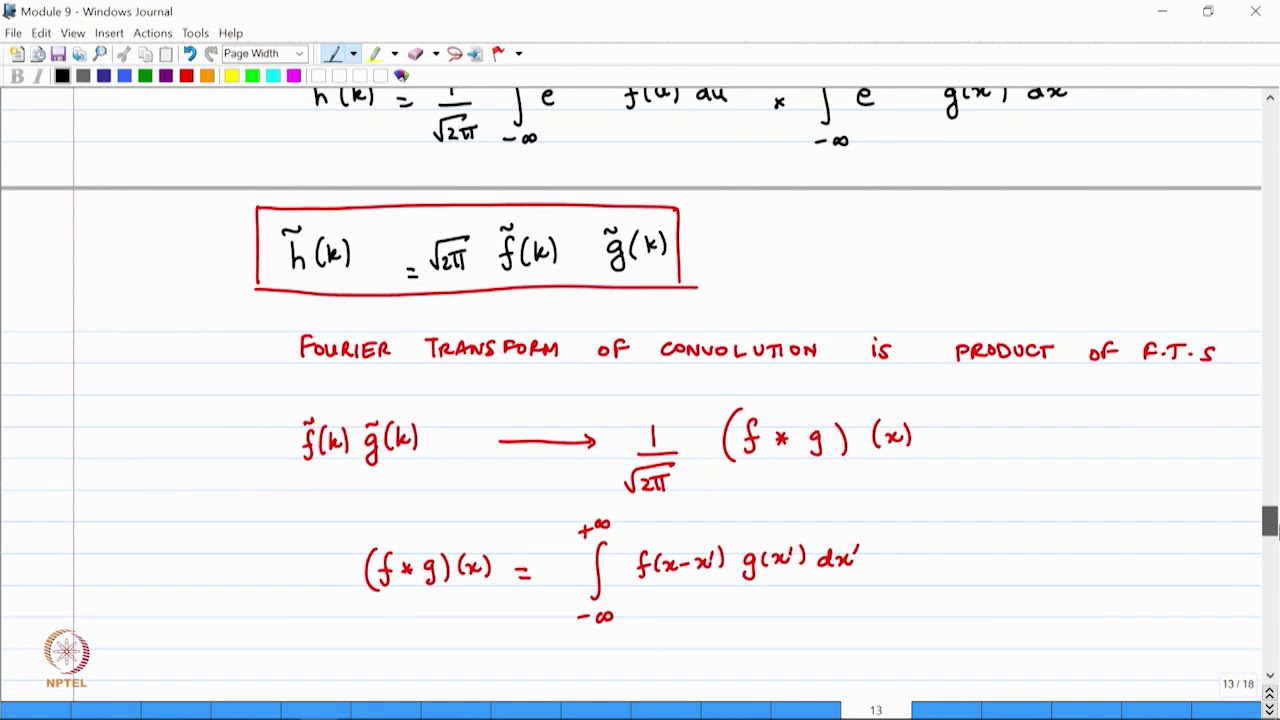 Module 9 - Windows Journal
File Edit View Insert Actions Tools Help
Page Width
B I
h(k) = 1/√2π ∫ e f(u) du × ∫ e g(x) dx
-∞ -∞
h̃(k) = √2π f̃(k) g̃(k)
FOURIER TRANSFORM OF CONVOLUTION is PRODUCT OF F.T.S
f̃(k) g̃(k) ⟶ 1/√2π (f * g) (x)
(f * g)(x) = ∫_{-∞}^{+∞} f(x-x') g(x') dx'
NPTEL
13 / 18
13